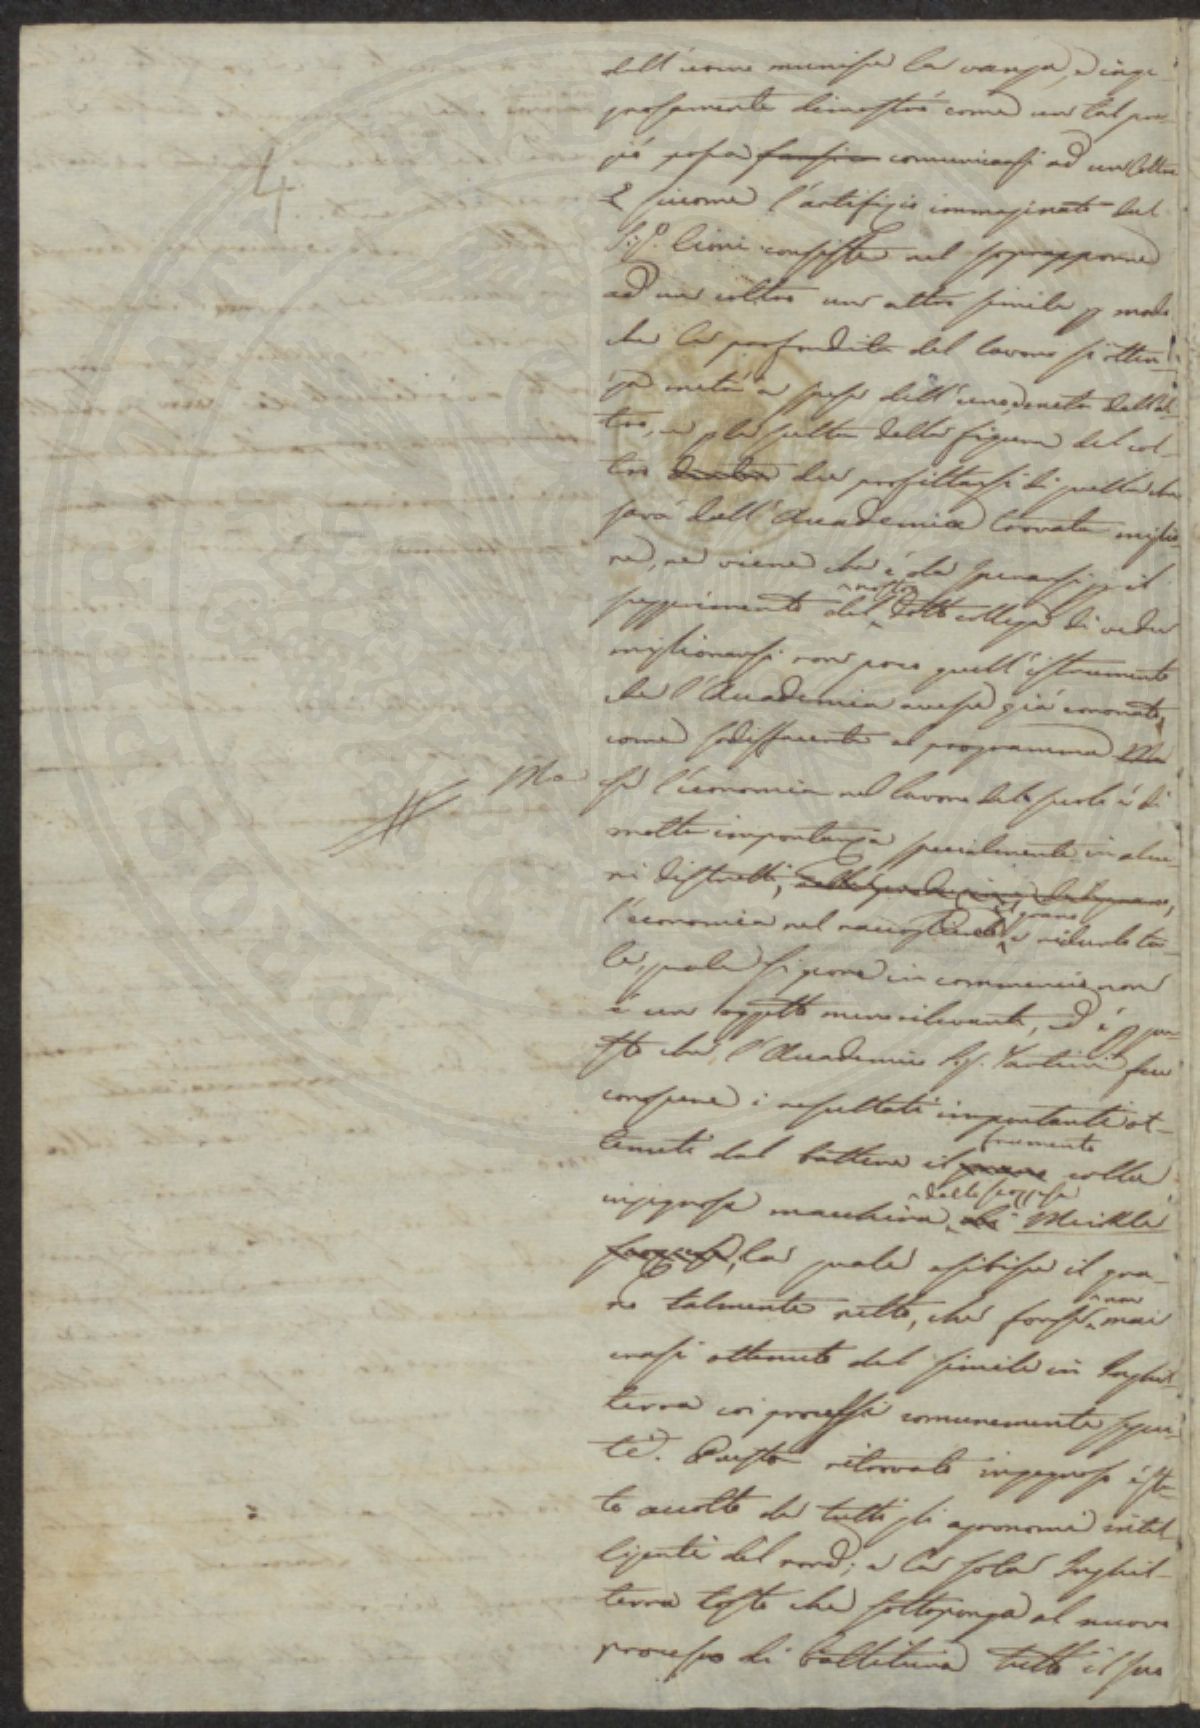 4
dell'uomo munisce la vanga, e inge-
gnosamente dimostrò come un tal pre-
gio possa farsi comunicarsi ad un coltro
E siccome l'artifizio immaginato dal
S.r P. Cioni consiste nel soprapporre
ad un coltro un altro simile p modo
che la profondità del lavoro si otten-
ga metà a spese dell'uno, e metà dell'al-
tro, e p la scelta della figura del col-
tro dee profittarsi di quella che
sarà dall'Accademia trovata miglio-
re, ne viene che è da sperarsi p il
suggerimento del nostro dotto collega di veder
migliorarsi non poco quell'istrumento
che l'Accademia avesse già coronato,
come sodisfacente al programma Ma
Ma se l'economia nel lavoro del suolo è di
molta importanza specialmente in alcu-
ni distretti, nella produzione del grano,
l'economia nel raccogliere il grano e ridurlo ta-
le, quale si pone in commercio non
è un oggetto meno rilevante, ed è p que-
sto che l'Accademico Sig. Tartini fece
conoscere i resultati importanti ot-
tenuti dal battere il grano frumento colla
ingegnosa macchina dello scozzese di Meikle
scozzese, la quale esibisce il gra-
no talmente netto, che forse non mai
erasi ottenuto del simile in Inghil-
terra coi processi comunemente segui-
ti. Questo ritrovato ingegnoso è sta-
to accolto da tutti gli agronomi intel-
ligenti del nord; e la sola Inghil-
terra tosto che sottoponga al nuovo
processo di battitura tutto il suo